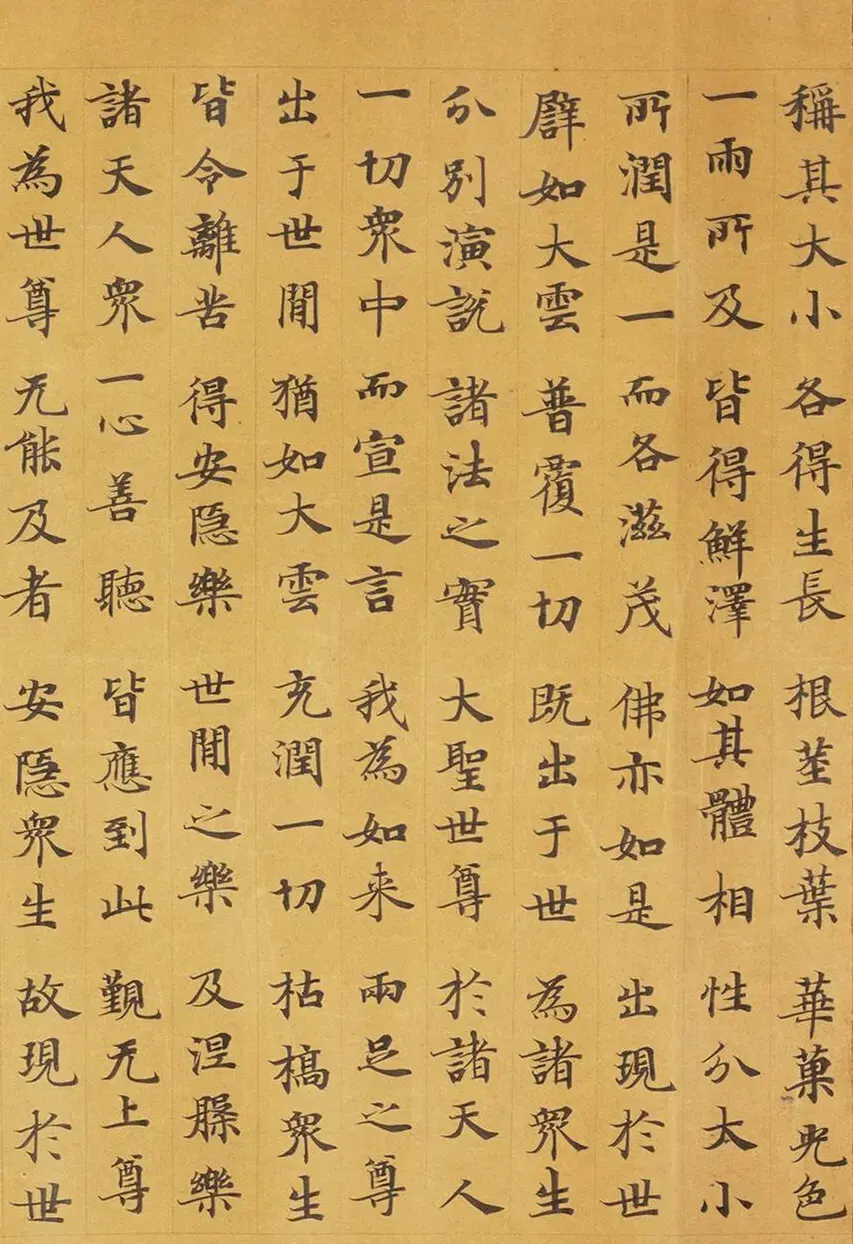 稱其大小 各得生長 根莖枝葉 華菓光色
一雨所及 皆得鮮澤 如其體相 性分大小
所潤是一 而各滋茂 佛亦如是 出現於世
譬如大雲 普覆一切 既出于世 為諸衆生
分別演說 諸法之實 大聖世尊 於諸天人
一切衆中 而宣是言 我為如来 兩足之尊
出于世間 猶如大雲 充潤一切 枯槁衆生
皆令離苦 得安隱樂 世間之樂 及涅槃樂
諸天人衆 一心善聽 皆應到此 覲无上尊
我為世尊 无能及者 安隱衆生 故現於世